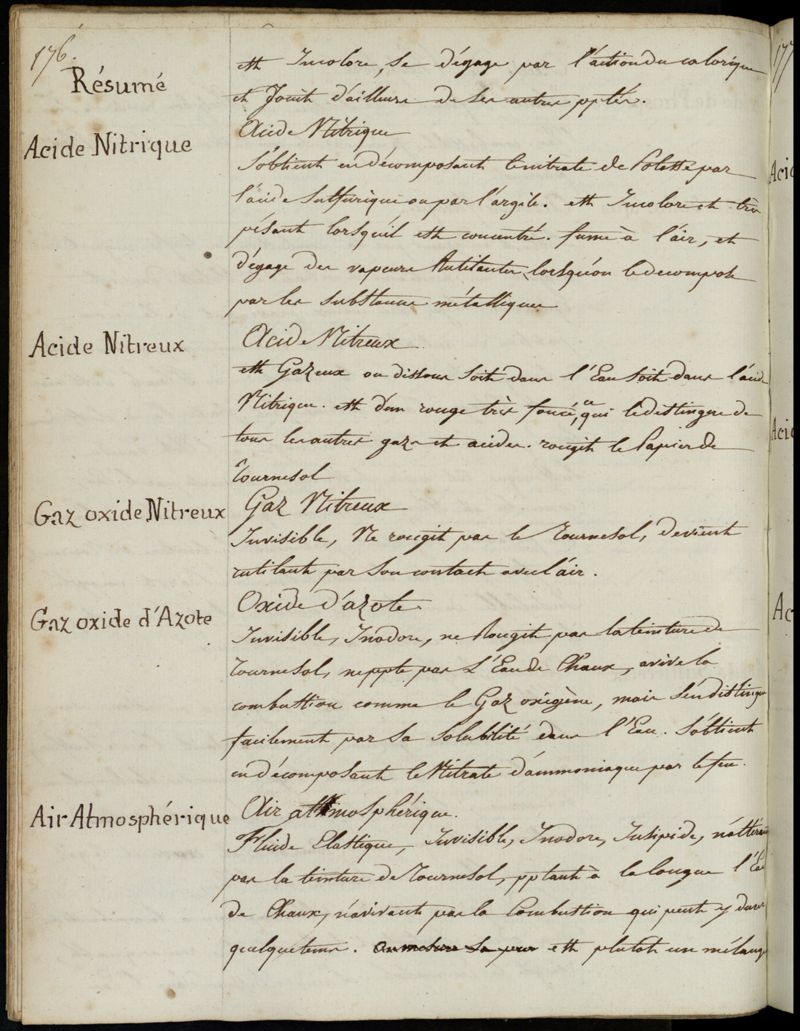 176.
Résumé
est Incolore, se dégage par l'action du calorique
et Jouit d'ailleurs de ses autres pptés.
Acide Nitrique
Acide Nitrique
S'obtient en décomposant le nitrate de Potasse par
l'acide sulfurique ou par l'argile. est Incolore et très
pésant lorsqu'il est concentré. fume à l'air, et
dégage des vapeurs Rutilantes, lorsqu'on le décompose
par les substances métalliques
Acide Nitreux
Acide Nitreux
est Gazeux ou dissous soit dans l'Eau soit dans l'acide
Nitrique. est d'un rouge très foncé, ce qui le distingue de
tous les autres gaz et acides. rougit le Papier de
Tournesol
Gaz oxide Nitreux
Gaz Nitreux
Invisible, Ne rougit pas le Tournesol, devient
rutilant par son contact avec l'air.
Gaz oxide d'Azote
Oxide d'azote
Invisible, Inodore, ne Rougit pas la teinture de
Tournesol, ne ppte pas L'Eau de Chaux, avive la
combustion comme le Gaz oxigène, mais s'en distingue
facilement par sa solubilité dans l'Eau. S'obtient
en décomposant le Nitrate d'ammoniaque par le feu.
Air Atmosphérique
Air atmosphérique.
Fluide Elastique, Invisible, Inodore, Insipide, n'altérant
pas la teinture de Tournesol, pptant à la longue l'Eau
de Chaux, n'avivant pas la Combustion qui peut y durer
quelque tems. est plutôt un mélange
177
Acid
Acid
Ac